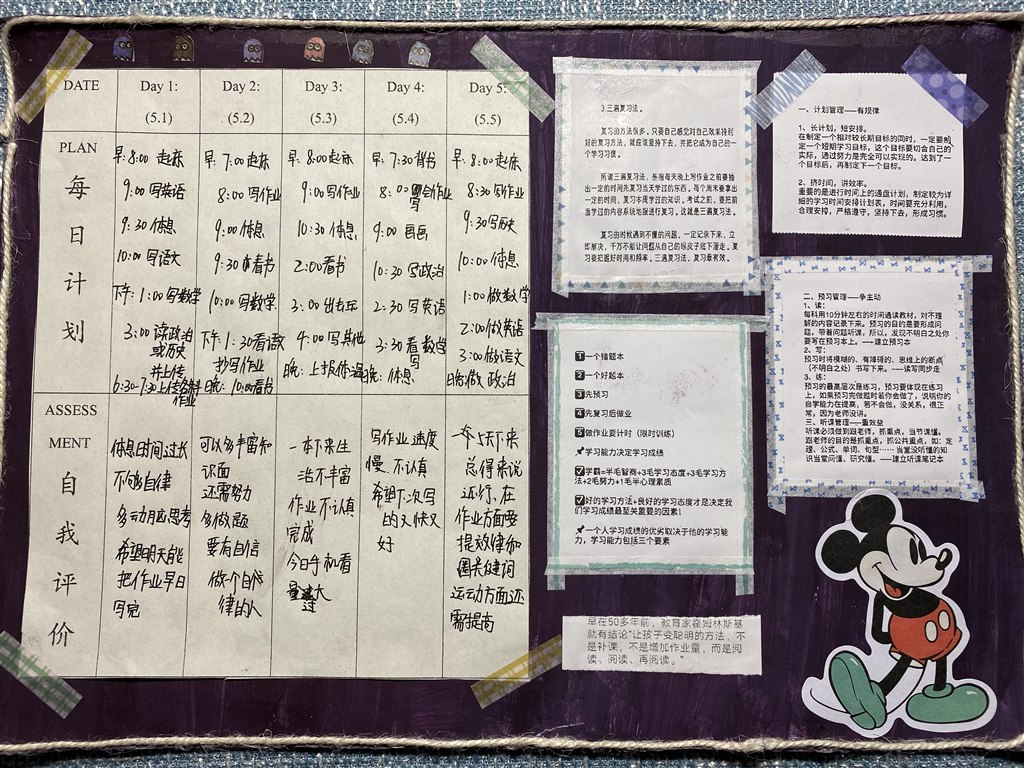 DATE
Day 1:
(5.1)
Day 2:
(5.2)
Day 3:
(5.3)
Day 4:
(5.4)
Day 5:
(5.5)
PLAN
每
日
计
划
早:8:00 起床
9:00 写英语
9:30 休息
10:00 写语文
下午:1:00写数学
3:00 读政治
或历史
并上传
作业
早:7:00 起床
8:00 写作业
9:00 休息
9:30 看书
10:00 写数学
下午:1:30看语
抄写作业
晚:10:00看书
早:8:00起床
9:00写作业
10:30 休息
2:00看书
3:00 出去玩
4:00 写其他
晚:上报体温
早:7:30 背书
8:00 写作业
9:00 画画
10:30 写政治
2:30 写英语
3:30 写数学
晚:休息
早:8:00起床
8:30 写作业
9:30 写历史
10:00 休息
1:00做数学
2:00做英语
3:00做语文
晚:做政治
ASSESS
MENT
自
我
评
价
休息时间过长
不够自律
多动脑思考
希望明天能
把作业早日
写完
可以多丰富知
识面
还需努力
多做题
要有自信
做个自律
律的人
一本下来生
活不丰富
作业不认真
完成
今日手机看
量过大
写作业速度
慢,不认真
希望下次写
的又快又
好
一个5天下来
总得来说
还行,在
作业方面要
提效律和
圈关键词
运动方面还
需提高
3.三遍复习法。
复习的方法很多,只要自己感觉对自己效率特别
好的复习方法,就应该坚持下去,并把它成为自己的一
个学习习惯。
所谓三遍复习法,是指每天晚上写作业之前要抽
出一定的时间先复习当天学过的东西,每个周末要拿出
一定的时间,复习本周学过的知识。考试之前,要把前
面学过的内容系统地做进行复习。这就是三遍复习法。
复习的时候遇到不懂的问题,一定记录下来,立
即解决,千万不能让问题从自己的眼皮子底下溜走。复
习要把握好时间和频率。三遍复习法,复习最有效。
一、计划管理——有规律
1、长计划,短安排。
在制定一个相对较长期目标的同时,一定要制
定一个短期学习目标,这个目标要切合自己的
实际,通过努力是完全可以实现的。达到了一
个目标后,再制定下一个目标。
2、挤时间,讲效率。
重要的是进行时间上的通盘计划,制定较为详
细的学习时间安排计划表,时间要充分利用,
合理安排,严格遵守,坚持下去,形成习惯。
二、预习管理——争主动
1、读:
每科用10分钟左右的时间通读教材,对不理
解的内容记录下来。预习的目的是要形成问
题,带着问题听课,所以,发现不明白之处你
要写在预习本上。——建立预习本
2、写:
预习时将模糊的、有障碍的、思维上的断点
(不明白之处)书写下来。——读写同步走
3、练:
预习的最高层次是练习,预习要体现在练习
上,如果预习完做题时若你会做了,说明你的
自学能力在提高,若不会做,没关系,很正
常,因为老师没讲。
三、听课管理——重效益
听课必须做到跟老师,抓重点,当节课懂。
跟老师的目的是抓重点,抓公共重点,如:定
理、公式、单词、句型……当堂没听懂的知
识当堂问懂、研究懂。——建立听课笔记本
1一个错题本
2一个好题本
3先预习
4先复习后做业
5做作业要计时(限时训练)
学习能力决定学习成绩
学霸=半毛智商+3毛学习态度+3毛学习方
法+2毛努力+1毛半心理素质
好的学习方法+良好的学习态度才是决定我
们学习成绩最至关重要的因素!
一个人学习成绩的优劣取决于他的学习能
力,学习能力包括三个要素
早在50多年前,教育家霍姆林斯基
就有结论"让孩子变聪明的方法,不
是补课,不是增加作业量,而是阅
读、阅读、再阅读。"